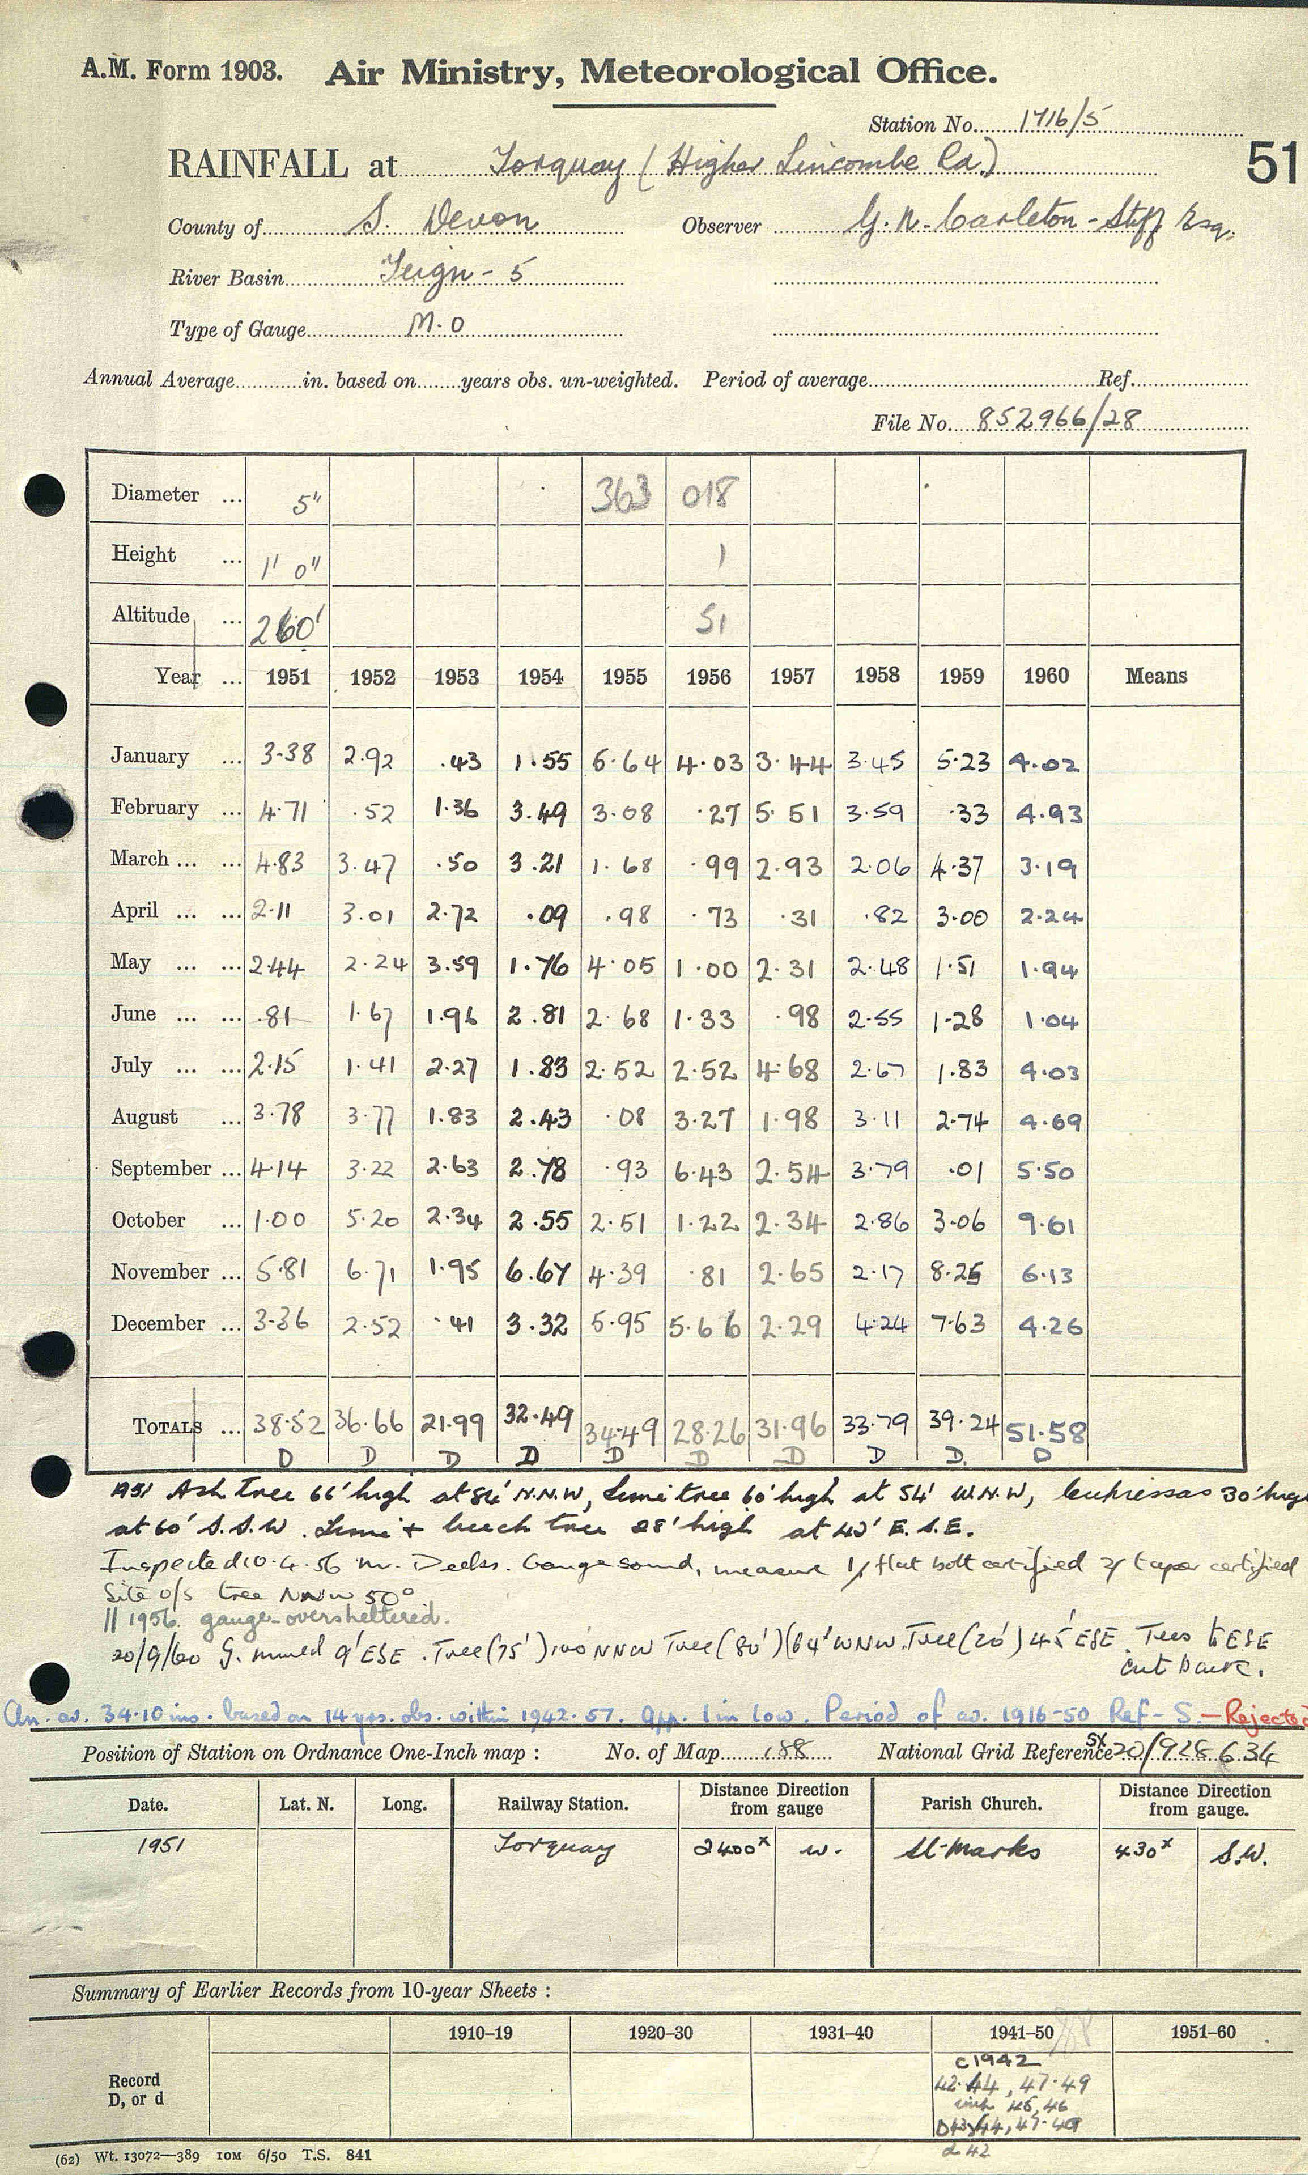 A.M. Form 1903. Air Ministry, Meteorological Office.
Station No. 1716/5
RAINFALL at Torquay (Higher Lincombe Rd.)
51
County of S. Devon Observer G. N. Carleton-Stiff Esq.
River Basin Teign - 5
Type of Gauge M.O
Annual Average in. based on years obs. un-weighted. Period of average Ref.
File No. 852966/28
Diameter ... 5" 363 018
Height ... 1' 0" 1
Altitude ... 260' 51
Year ... 1951 1952 1953 1954 1955 1956 1957 1958 1959 1960 Means
January ... 3.38 2.92 .43 1.55 5.64 4.03 3.44 3.45 5.23 4.02
February ... 4.71 .52 1.36 3.49 3.08 .27 5.51 3.59 .33 4.93
March ... ... 4.83 3.47 .50 3.21 1.68 .99 2.93 2.06 4.37 3.19
April ... ... 2.11 3.01 2.72 .09 .98 .73 .31 .82 3.00 2.24
May ... ... 2.44 2.24 3.59 1.76 4.05 1.00 2.31 2.48 1.51 1.94
June ... ... .81 1.67 1.96 2.81 2.68 1.33 .98 2.55 1.28 1.04
July ... ... 2.15 1.41 2.27 1.83 2.52 2.52 4.68 2.67 1.83 4.03
August ... 3.78 3.77 1.83 2.43 .08 3.27 1.98 3.11 2.74 4.69
September ... 4.14 3.22 2.63 2.78 .93 6.43 2.54 3.79 .01 5.50
October ... 1.00 5.20 2.34 2.55 2.51 1.22 2.34 2.86 3.06 9.61
November ... 5.81 6.71 1.95 6.67 4.39 .81 2.65 2.17 8.25 6.13
December ... 3.36 2.52 .41 3.32 5.95 5.66 2.29 4.24 7.63 4.26
TOTALS ... 38.52 36.66 21.99 32.49 34.49 28.26 31.96 33.79 39.24 51.58
D D D D D D D D D. D
1951 Ash tree 66' high at 84' N.N.W, Lime tree 60' high at 54' W.N.W, Cupressas 30' high
at 60' S.S.W. Lime + beech tree 28' high at 40' E.S.E.
Inspected 10.4.56 Mr. Deeks. Gauge sound, measure 1/ flat bott certified 2/ taper certified
Site o/s tree NNW 50°
// 1956. gauge oversheltered.
20/9/60 G. moved 9' ESE. Tree (75') 100' NNW Tree (80') 64' WNW. Tree (20') 45' ESE. Trees to ESE
cut back.
An. av. 34.10 ins. based on 14 yrs. obs. within 1942-57. App. 1 in low. Period of av. 1916-50 Ref - S. - Rejected
Position of Station on Ordnance One-Inch map : No. of Map 188 National Grid Reference SX 20/928634
Date. Lat. N. Long. Railway Station. Distance from gauge Direction Parish Church. Distance from gauge. Direction
1951 Torquay 2400x W. St. Marks 430x S.W.
Summary of Earlier Records from 10-year Sheets :
1910–19 1920–30 1931–40 1941–50 1951–60
Record
D, or d
c 1942
42-44, 47-49
45, 46
44, 47-49
d 42
(62) Wt. 13072—389 10M 6/50 T.S. 841